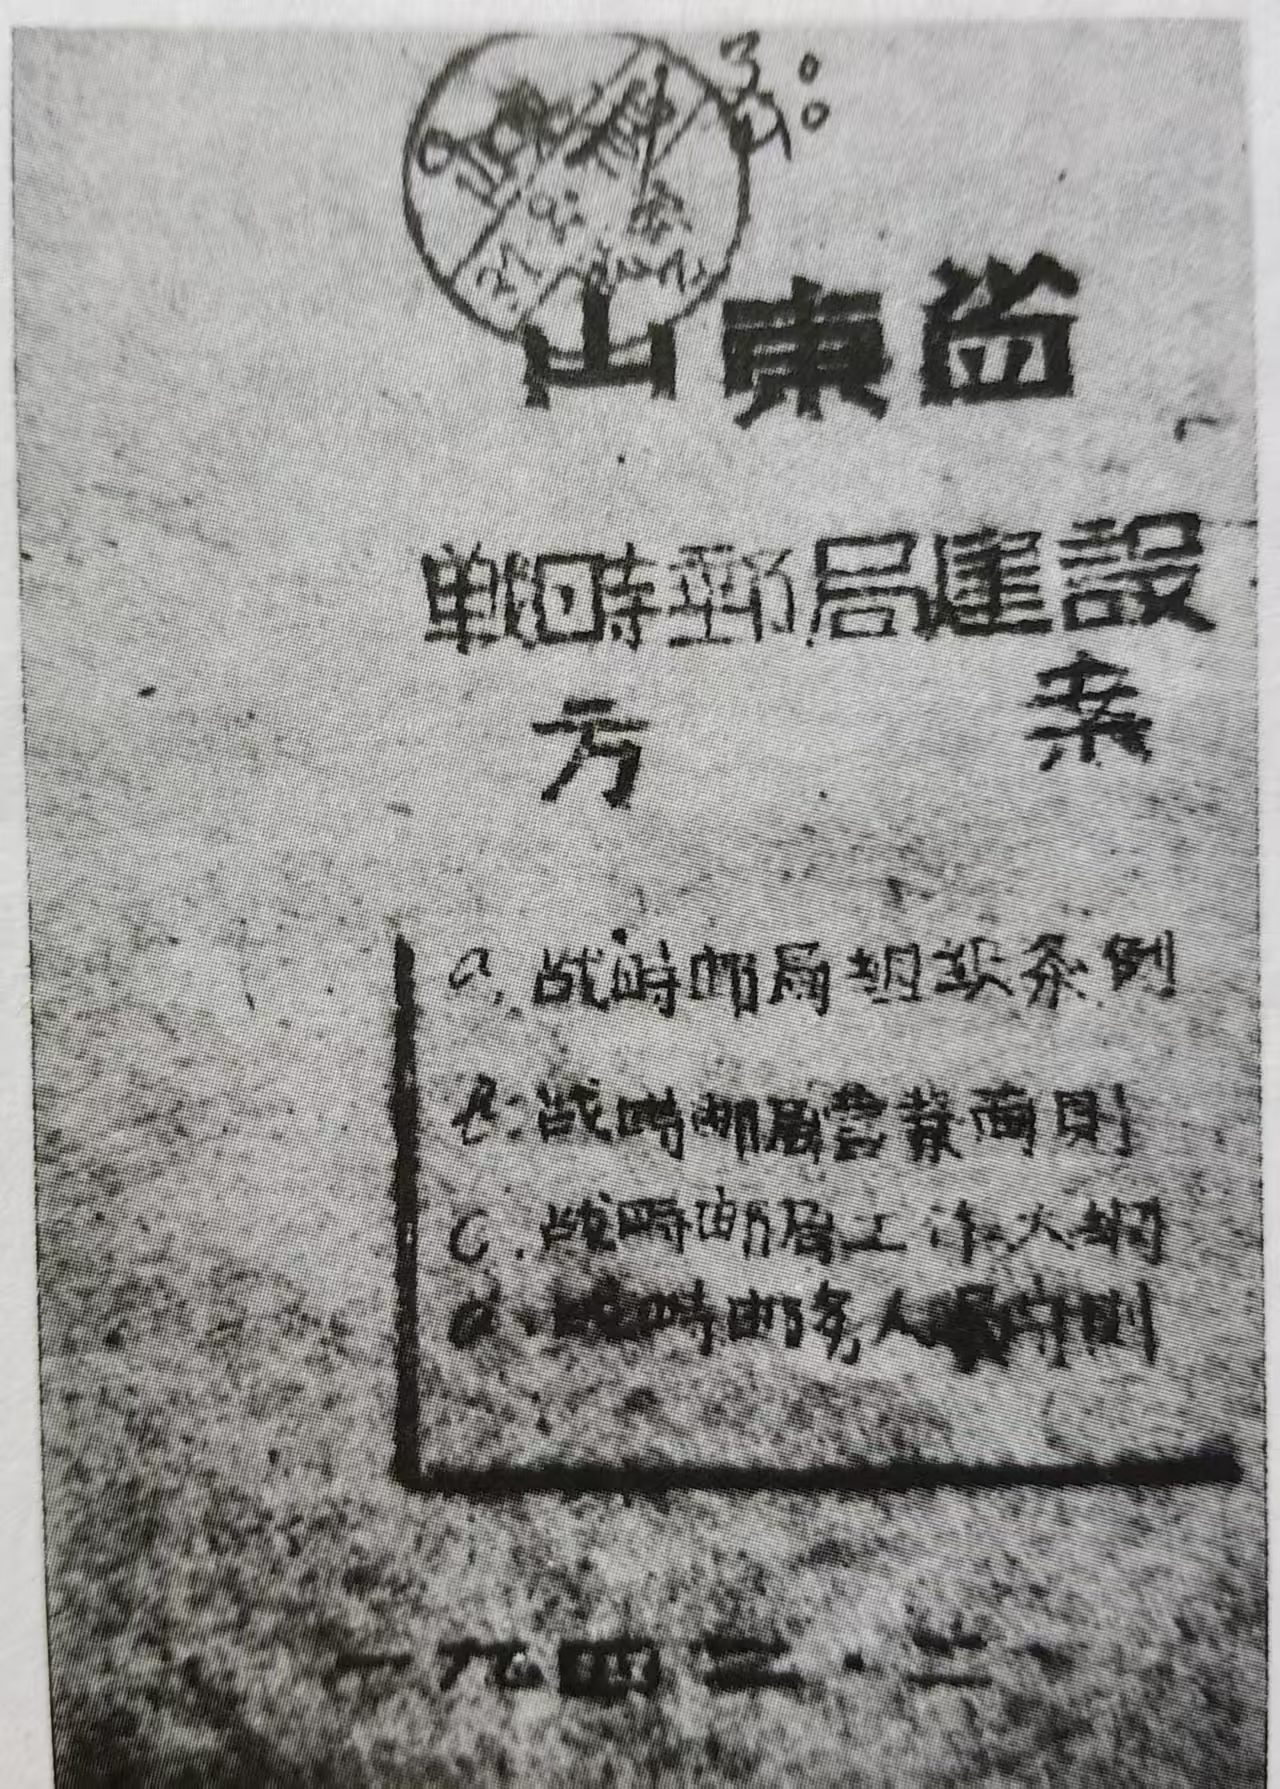 山東省
戰時郵局建設
方 案
a. 战時邮局组织条例
b. 战時邮局营業商則
c. 战時邮局工作大纲
d. 战時邮务人員守則
一九四二·二